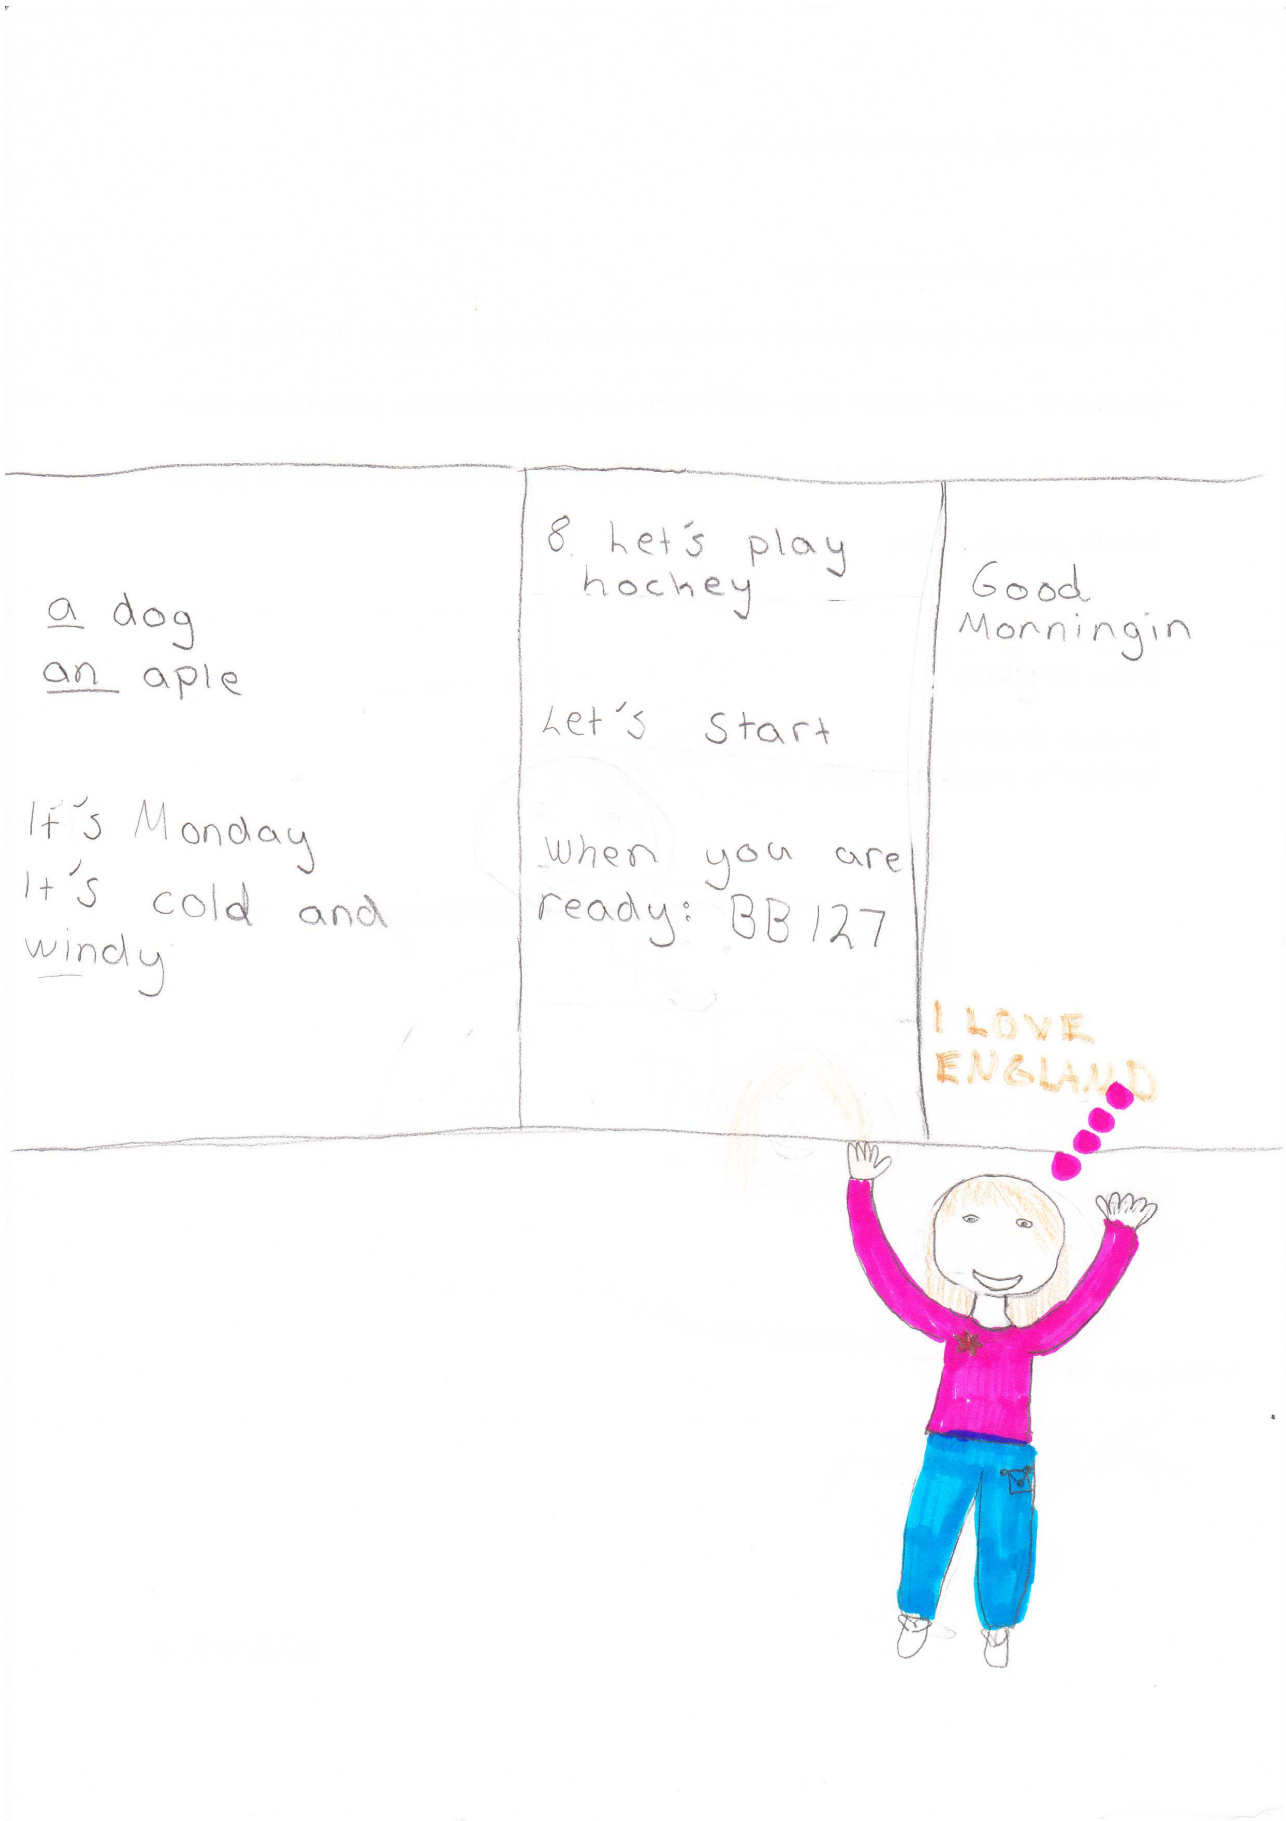 a dog
an aple
It's Monday
It's cold and
windy
8. Let's play
hockey
Let's start
When you are
ready: BB 127
Good
Morningin
I LOVE
ENGLAND